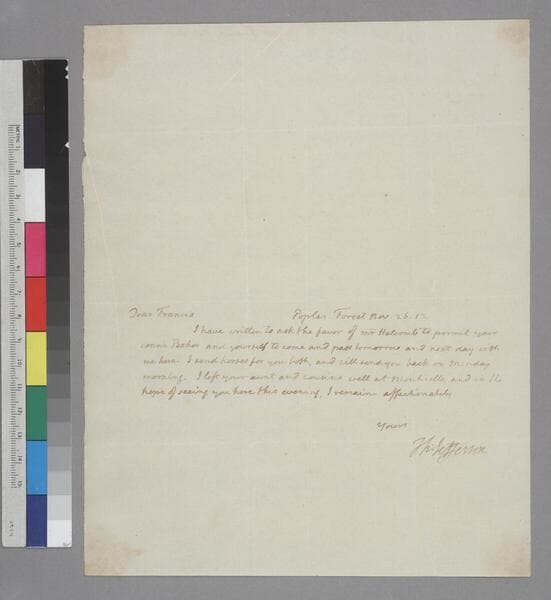 Dear Francis
Poplar Forest Nov. 26. 17.
I have written to ask the favor of mr Halcomb to permit your
cousin Baker and yourself to come and pass tomorrow and next day with
me here. I send horses for you both, and will send you back on Monday
morning. I left your aunt and cousins well at Monticello, and in the
hope of seeing you here this evening, I remain affectionately
Yours
Th: Jefferson